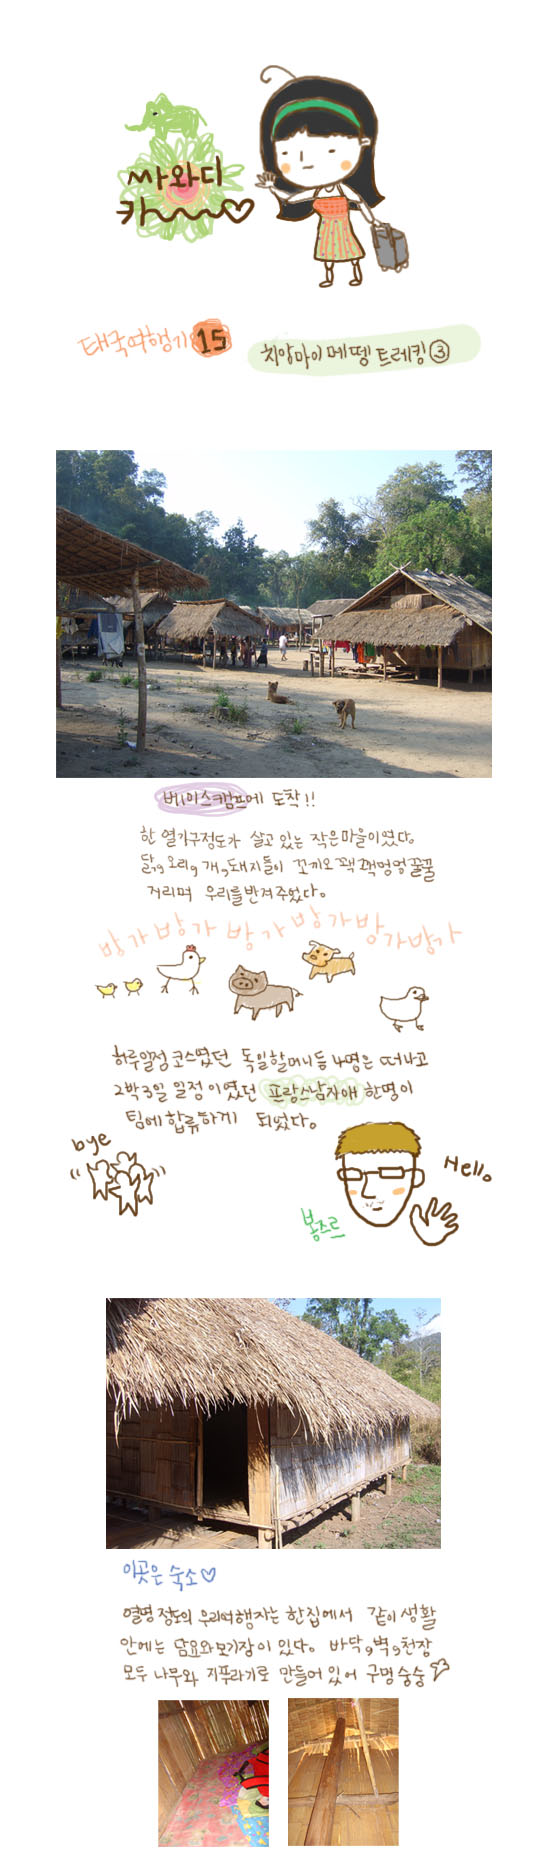 싸와디
카~~~♡
태국여행기 15
치앙마이 메땡 트레킹 ③
베이스캠프에 도착!!
한 열가구정도가 살고 있는 작은마을이였다.
닭, 오리, 개, 돼지들이 꼬끼오 꽥꽥멍멍꿀꿀
거리며 우리를 반겨주었다.
방가 방가 방가 방가 방가 방가
하루일정 코스였던 독일할머니등 4명은 떠나고
2박3일 일정이였던 프랑스남자애 한명이
팀에 합류하게 되었다.
bye
Hello
봉쥬르
이곳은 숙소♡
열명 정도의 우리여행자는 한집에서 같이 생활
안에는 담요와 모기장이 있다. 바닥, 벽, 천장
모두 나무와 지푸라기로 만들어 있어 구멍 숭숭